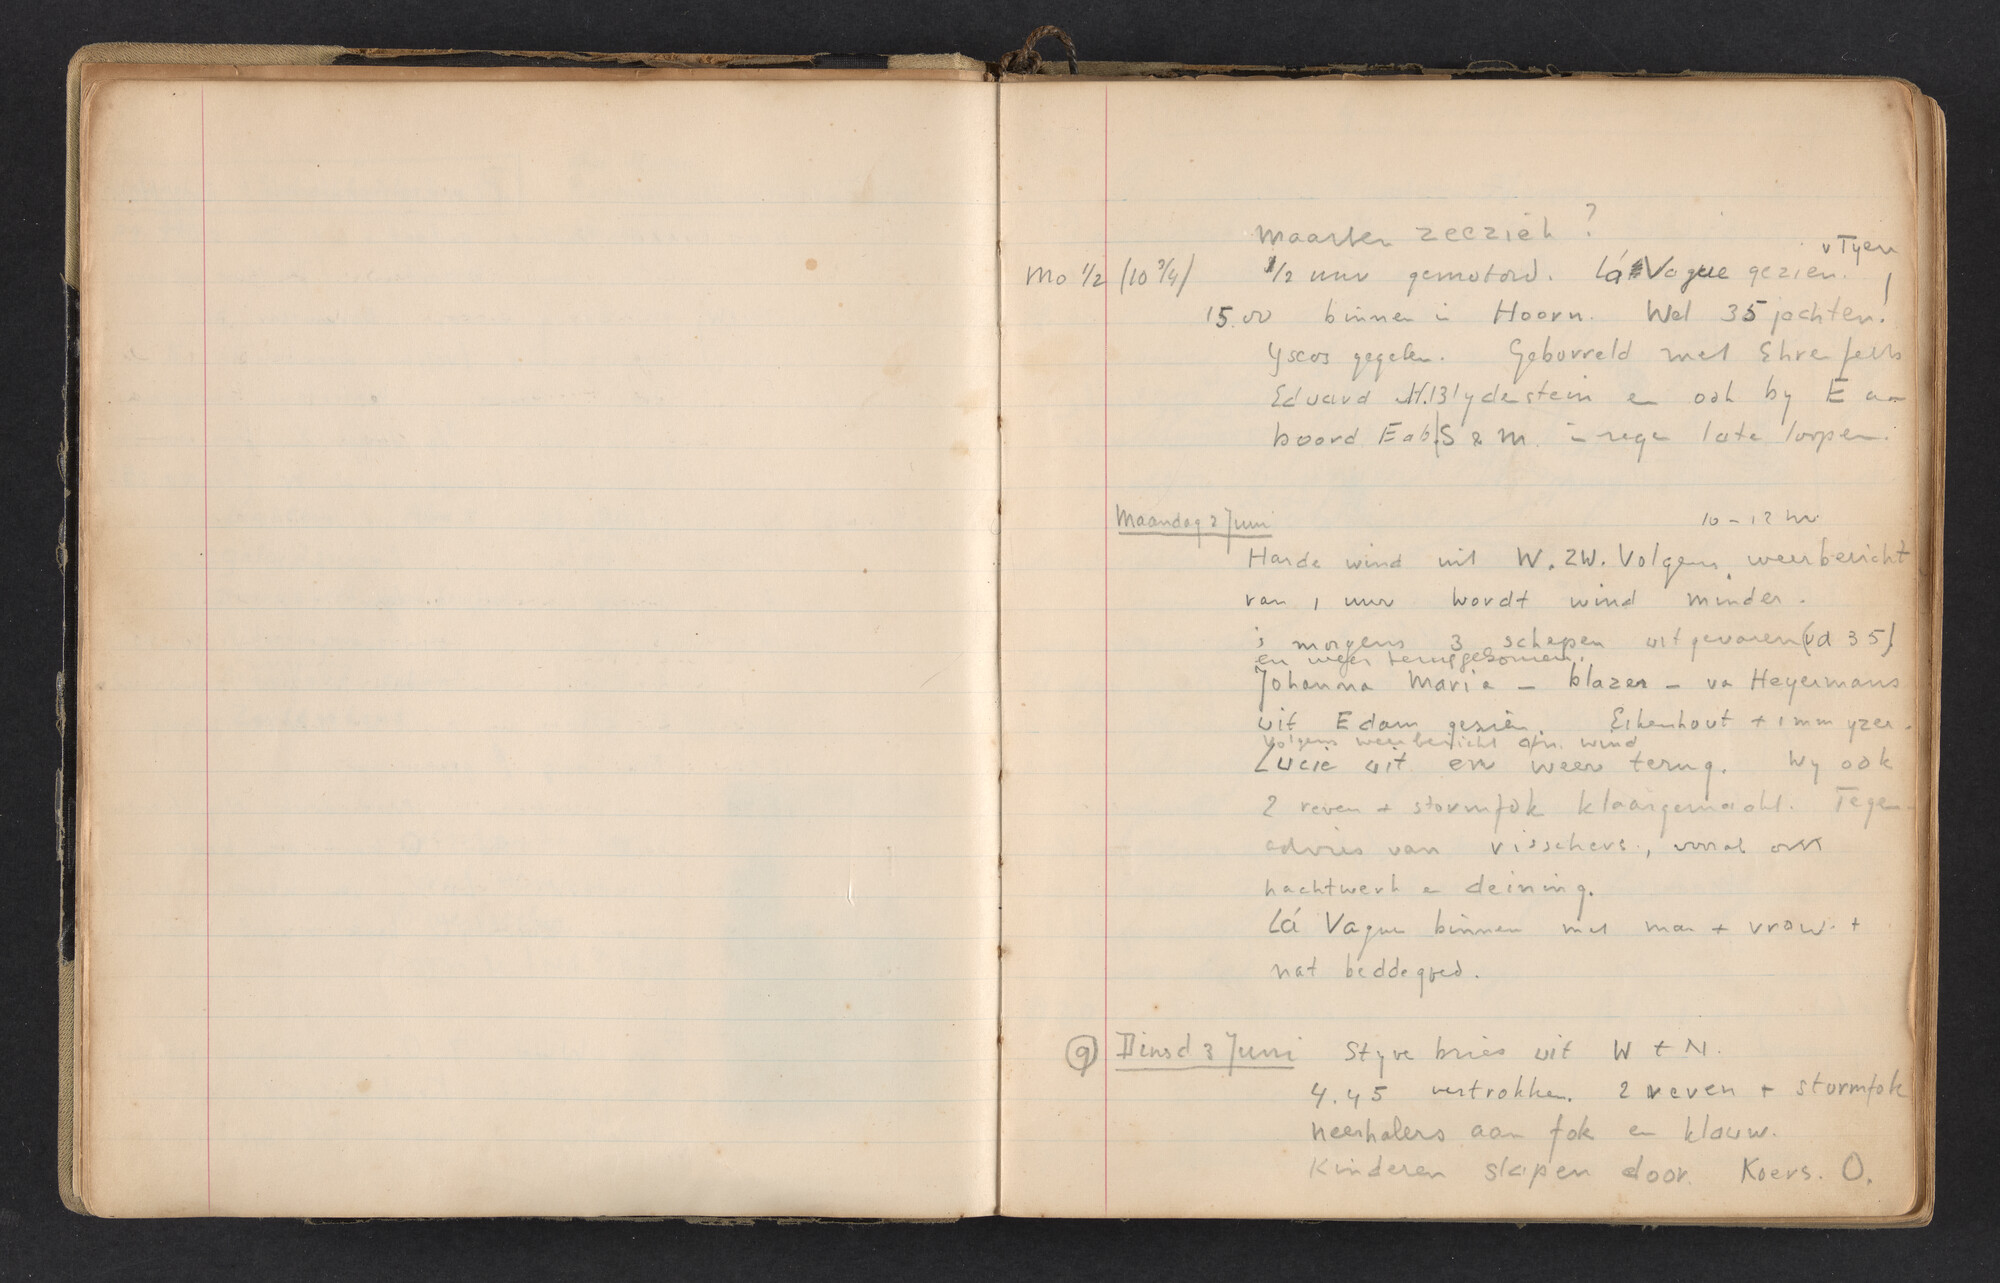 Maarten zeeziek?
v Tyen
Mo 1/2 (10 3/4) 1/2 uur gemotord. Lá Vague gezien.
15.00 binnen in Hoorn. Wel 35 jachten!
Yscos gegeten. Geborreld met Ehrenfels
Eduard H. Blydenstein en ook by E aan
boord. E ab. S & M. in regen late lopen.
Maandag 2 Juni 10 - 12 hr.
Harde wind uit W. ZW. Volgens weerbericht
van 1 uur wordt wind minder.
's morgens 3 schepen uitgevaren (vd 35)
en weer teruggekomen.
Johanna Maria - blazer - va Heyermans
uit Edam gezien. Eikenhout + 1 mm yzer.
Volgens weerbericht afn. wind
Lucie uit en weer terug. Wy ook
2 reven + stormfok klaargemaakt. Tegen
advies van visschers, vooral ook
nachtwerk en deining.
Lá Vague binnen met man + vrouw +
nat beddegoed.
9 Dinsd 3 Juni Styve bries uit W t N.
4.45 vertrokken. 2 reven + stormfok
Neerhalers aan fok en klouw.
Kinderen slapen door. Koers. O.